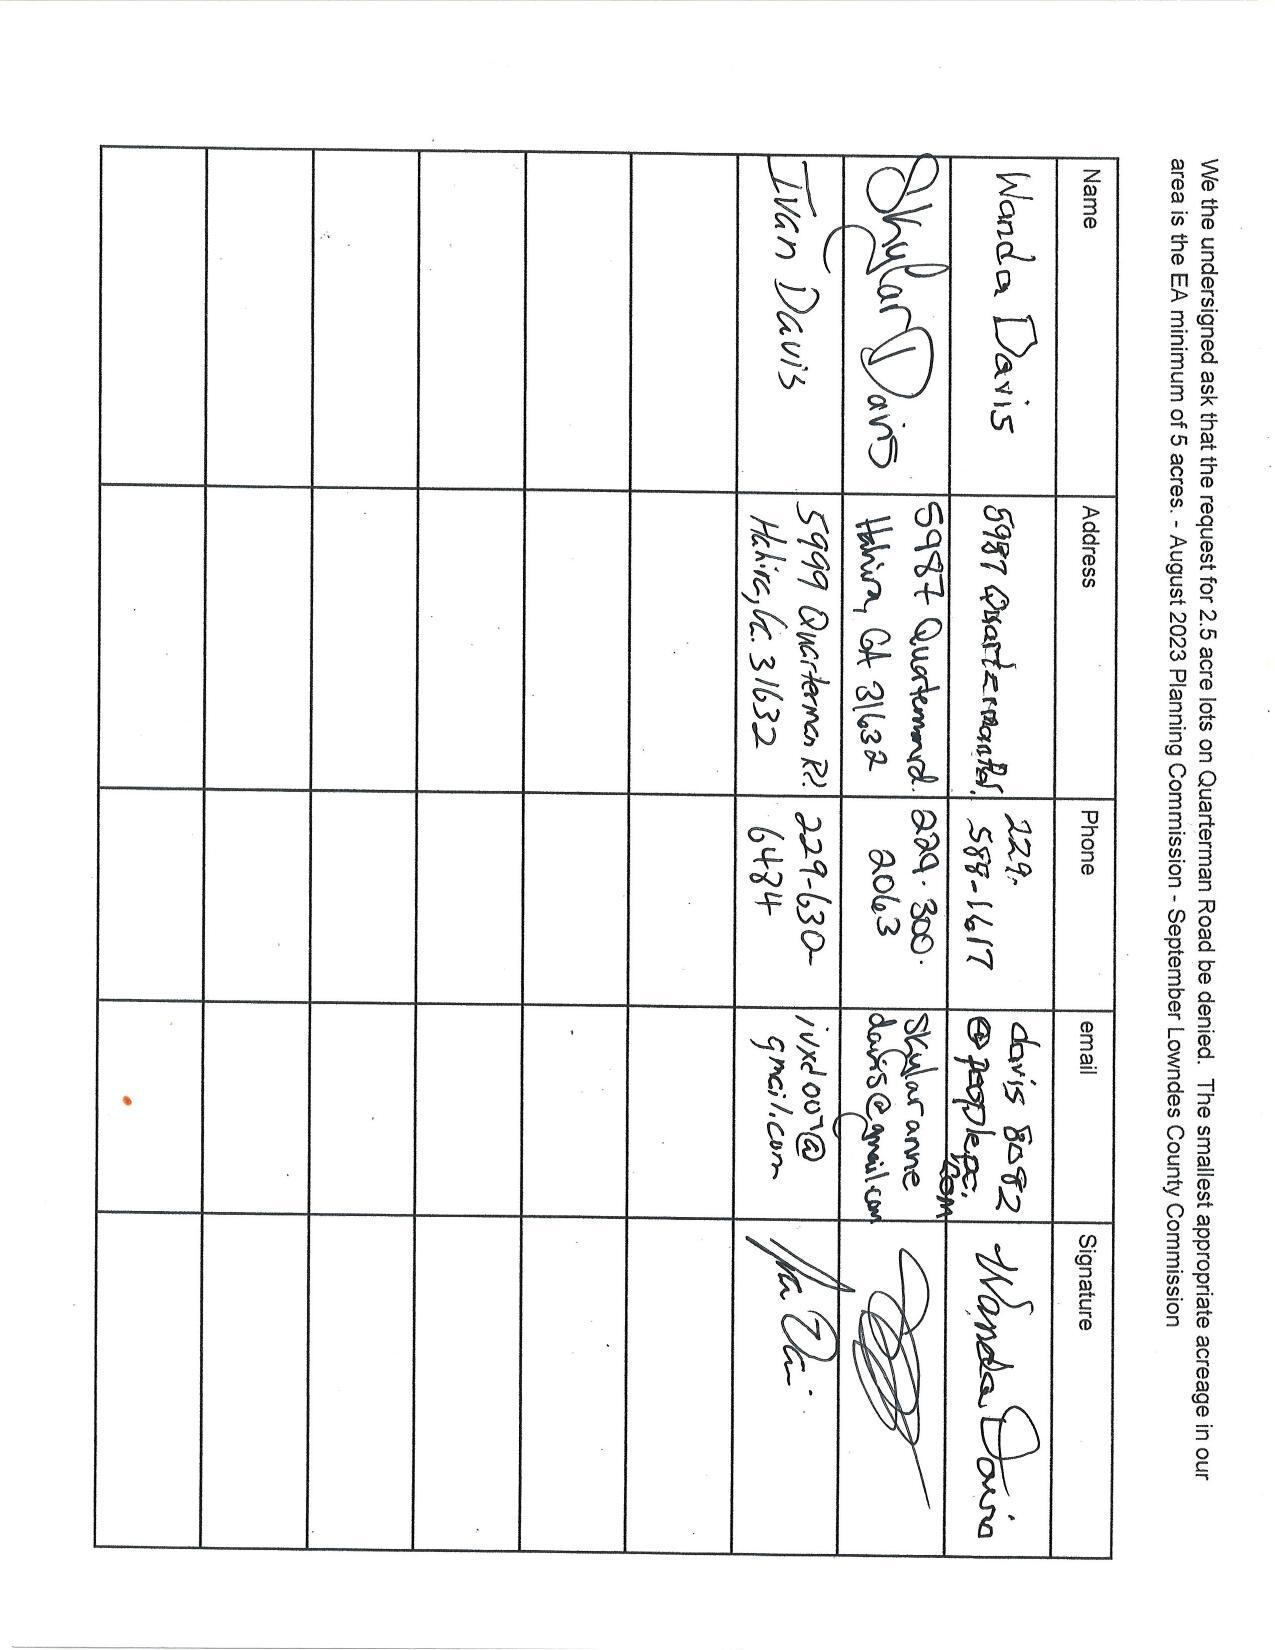 We the undersigned ask that the request for 2.5 acre lots on Quarterman Road be denied. The smallest appropriate acreage in our
area is the EA minimum of 5 acres. - August 2023 Planning Commission - September Lowndes County Commission
Name Address Phone email Signature
Wanda Davis 5987 Quarterman Rd. 229. davis 8082 Wanda Davis
588-1617 @peoplepc.
com
Skylar Davis 5987 Quarterman rd. 229.300. Skylaranne
Hahira, GA 31632 2063 davis@gmail.com
Ivan Davis 5999 Quarterman Rd. 229-630-
Hahira, Ga. 31632 6484 gmail.com